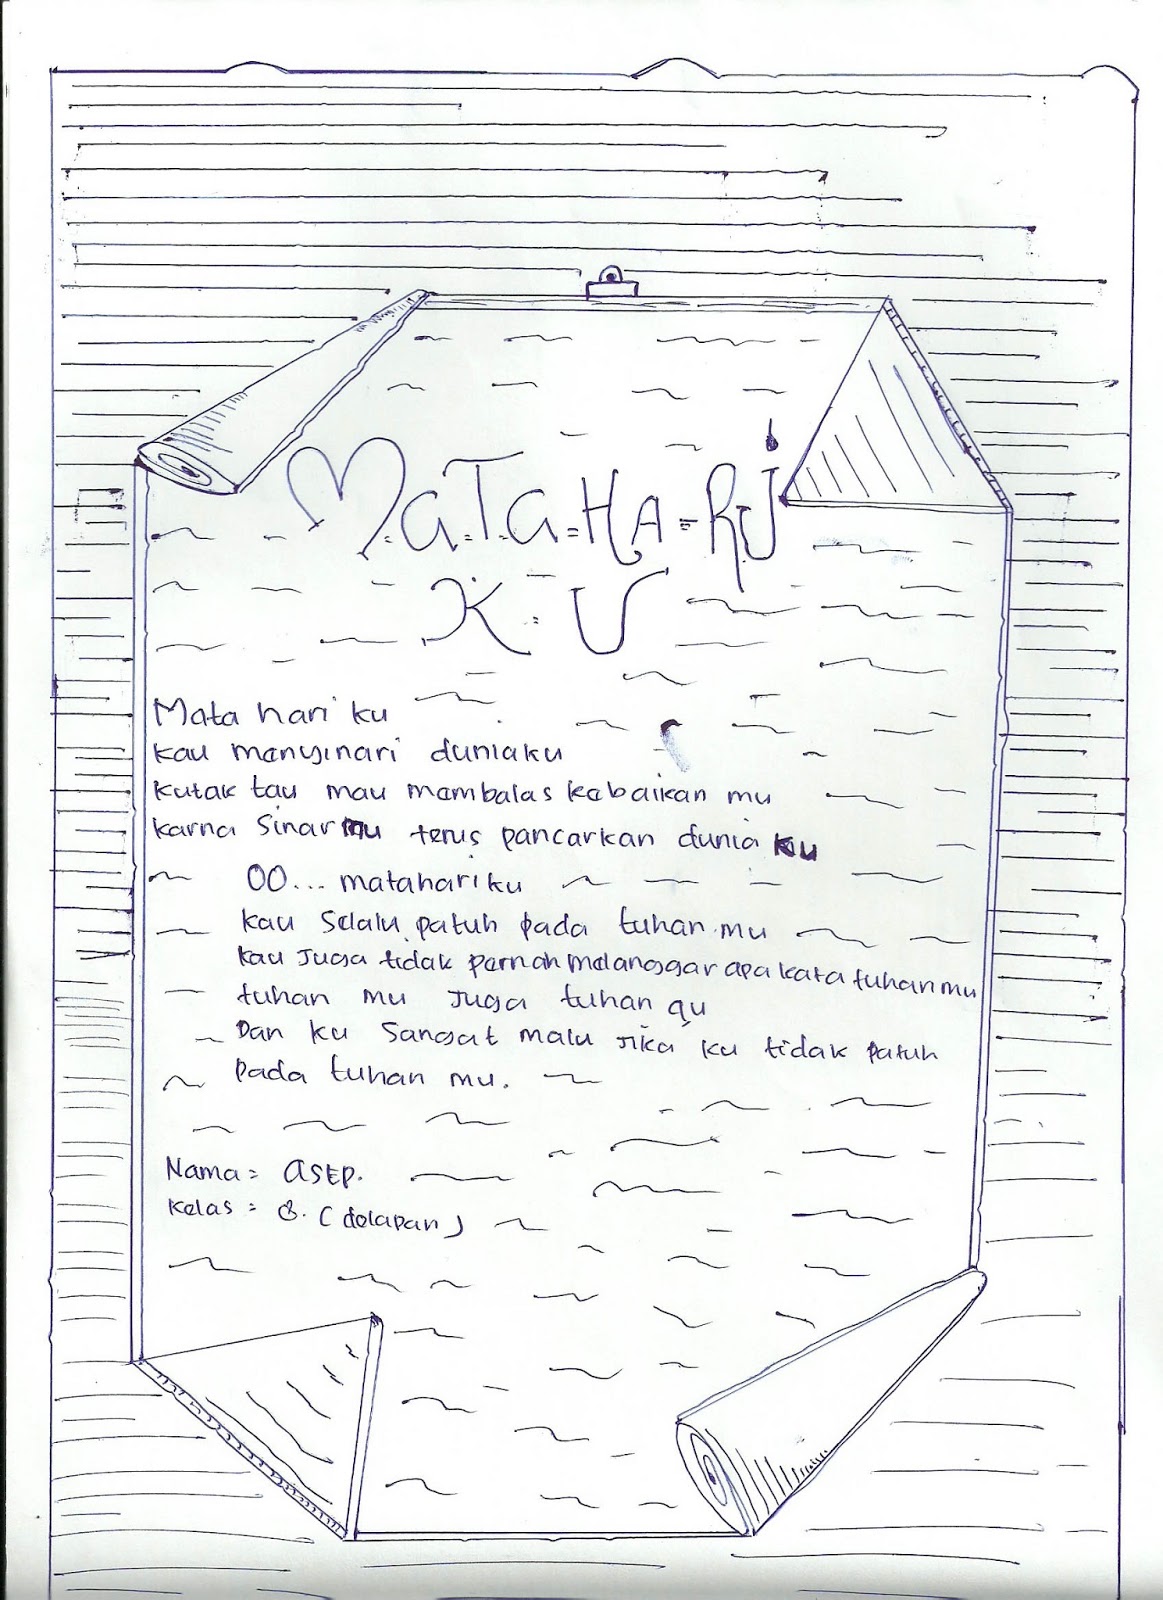 MaTaHARI
KU
Mata hari ku
kau menyinari duniaku
kutak tau mau membalas kebaikan mu
karna Sinarmu terus pancarkan dunia ku
OO... matahariku
kau Selalu patuh pada tuhan mu
kau Juga tidak pernah melanggar apa kata tuhan mu
tuhan mu Juga tuhan qu
Dan ku Sangat malu Jika ku tidak patuh
pada tuhan mu.
Nama = aSEP.
Kelas = 8. (delapan)